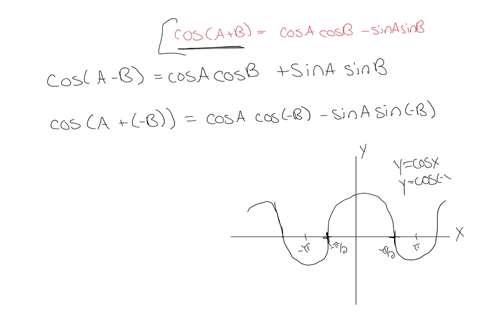 cos(A+B) = cosA cosB - sinA sinB
cos(A-B) = cosA cosB + sinA sinB
cos(A+(-B)) = cosA cos(-B) - sinA sin(-B)
y
y=cosx
y=cos(-x
x
-π
-π/2
π/2
π